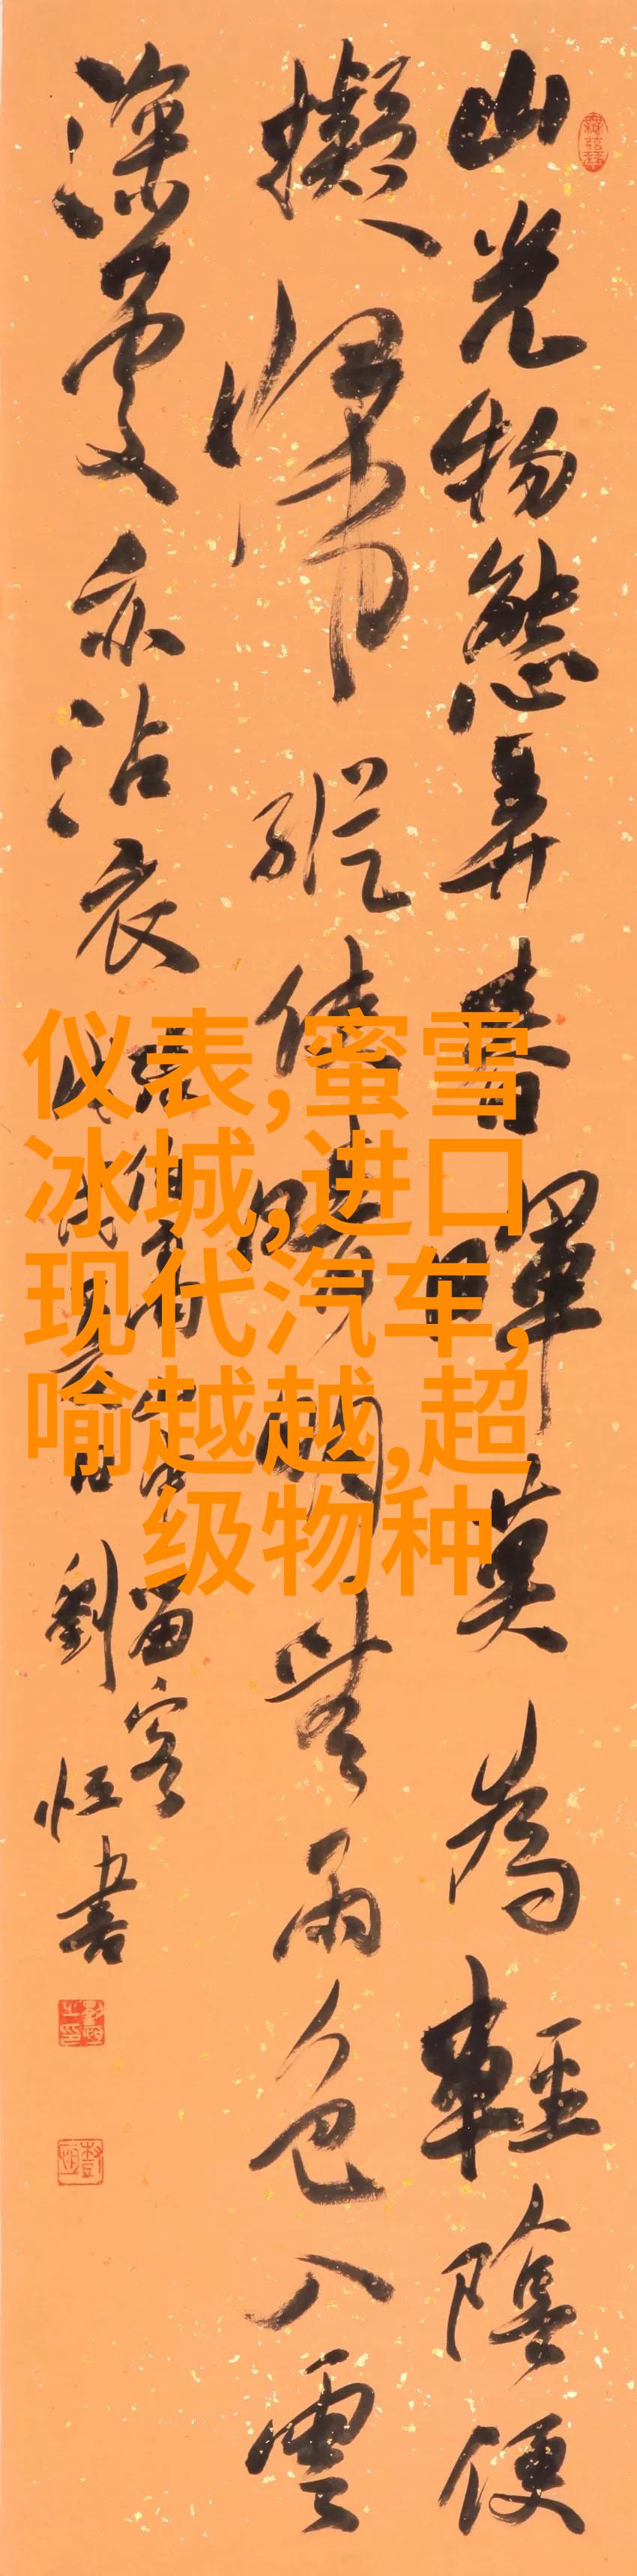 山光物態弄春暉莫為輕陰便
擬歸縱使晴明無雨色入雲
深處亦沾衣
張伯高山中留客
劉恒書
仪表,蜜雪
冰城,进口
现代汽车,
喻越越,超
级物种